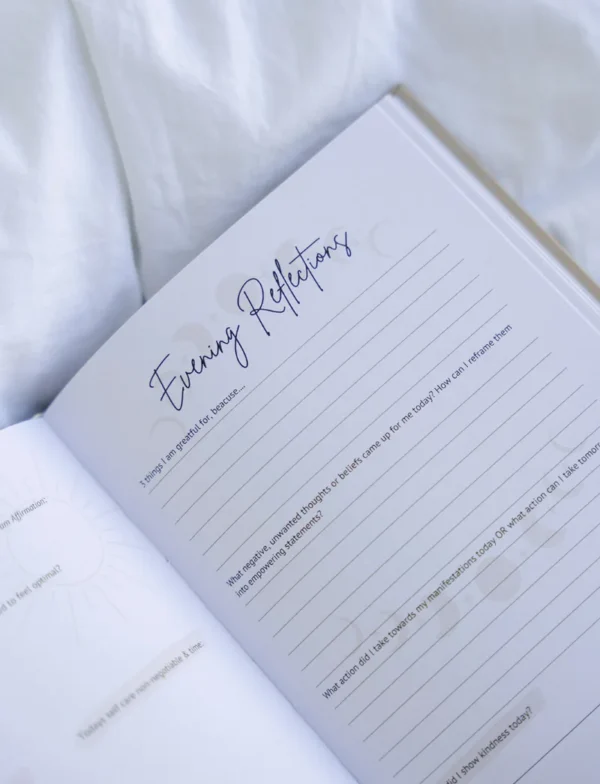 am Affirmation:
d to feel optimal?
Todays self care non-negotiable & time:
Evening Reflections
3 things I am greatful for, beacuse...
What negative, unwanted thoughts or beliefs came up for me today? How can I reframe them
into empowering statements?
What action did I take towards my manifestations today OR what action can I take tomorr
did I show kindness today?